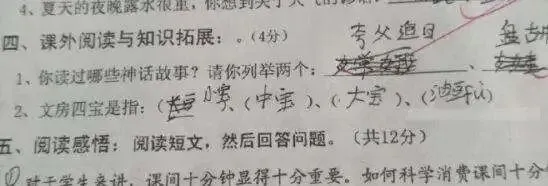 4、夏天的夜晚露水很重，你想到关于天气的
四、课外阅读与知识拓展：。(4分)
夸父追日
1、你读过哪些神话故事？请你列举两个：
2、文房四宝是指：( 小宝、(中宝)、(大宝)、(油)
五、阅读感悟：阅读短文，然后回答问题。（共12分）
① 对于学生来讲，课间十分钟显得十分重要。如何科学消费课间十分